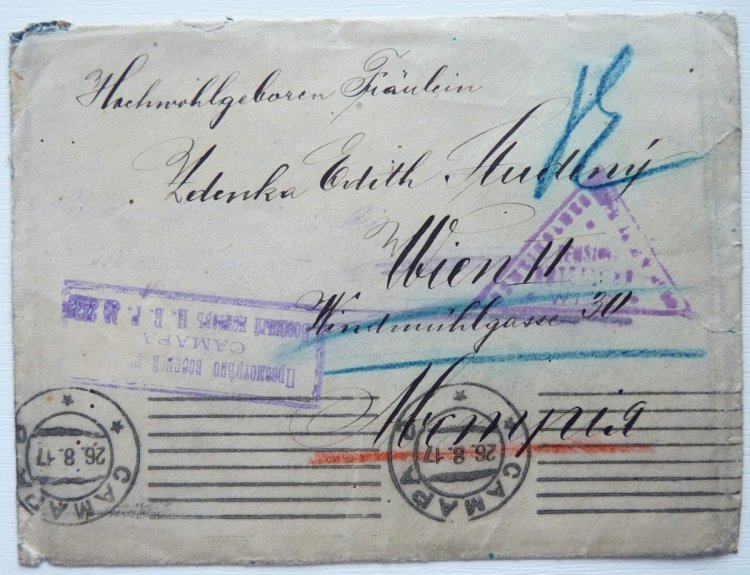 Hochwohlgeboren Fräulein
Zdenka Edith Studený
Wien
Windmühlgasse 30
Австрія
Просмотрѣно
САМАРА
Военный цензоръ
САМАРА 26.8.17
САМАРА 26.8.17